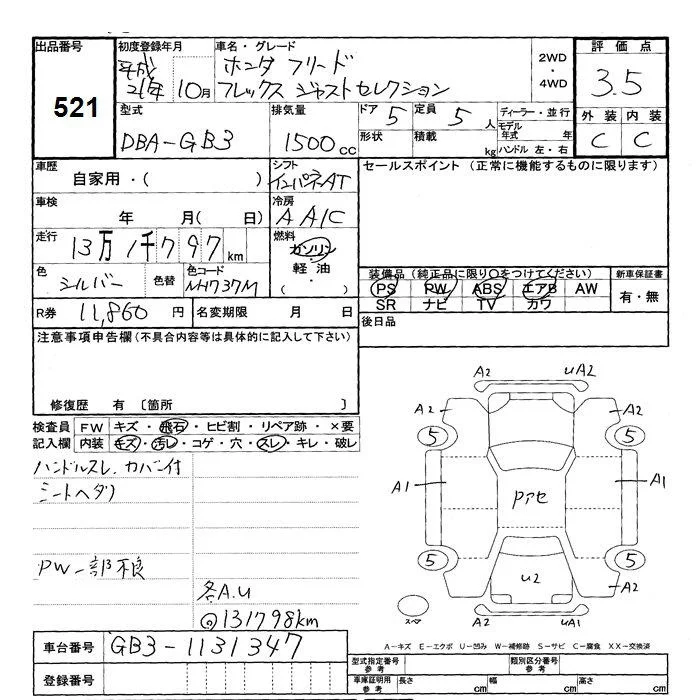 出品番号 初度登録年月 車名・グレード 評価点
521
平成21年 10月
ホンダ フリード
フレックス ジャストセレクション
2WD
・
4WD
3.5
型式 排気量 ドア 定員 ディーラー・並行 外装 内装
DBA-GB3 1500cc 5 5人 モデル年式 年 C C
形状 積載 kg ハンドル 左・右
車歴 シフト セールスポイント (正常に機能するものに限ります)
自家用・( ) インパネAT
車検 冷房
年 月( 日) AAC
走行 燃料
13万1千797km ガソリン・軽油・( )
色 色替 色コード 装備品(純正品に限り○をつけてください) 新車保証書
シルバー NH737M PS PW ABS エアB AW 有・無
SR ナビ TV カワ
R券 11,860円 名変期限 月 日 後日品
注意事項申告欄(不具合内容等は具体的に記入して下さい)
修復歴 有 〔箇所 〕
検査員 FW キズ・飛石・ヒビ割・リペア跡・×要
記入欄 内装 キズ・汚レ・コゲ・穴・スレ・キレ・破レ
ハンドルスレ、カバー付
シートヘタリ
PW一部不良
各A.U
@131798km
A2 UA2
A2 A2
5 5
A1 A1
Pアセ
5 5
U2
A2
A2 UA1
スペア
車台番号 GB3-1131347
登録番号
A-キズ E-エクボ U-凹み W-補修跡 S-サビ C-腐食 XX-交換済
型式指定番号 参考 類別区分番号 参考
車庫証明用 参考 長さ cm 幅 cm 高さ cm